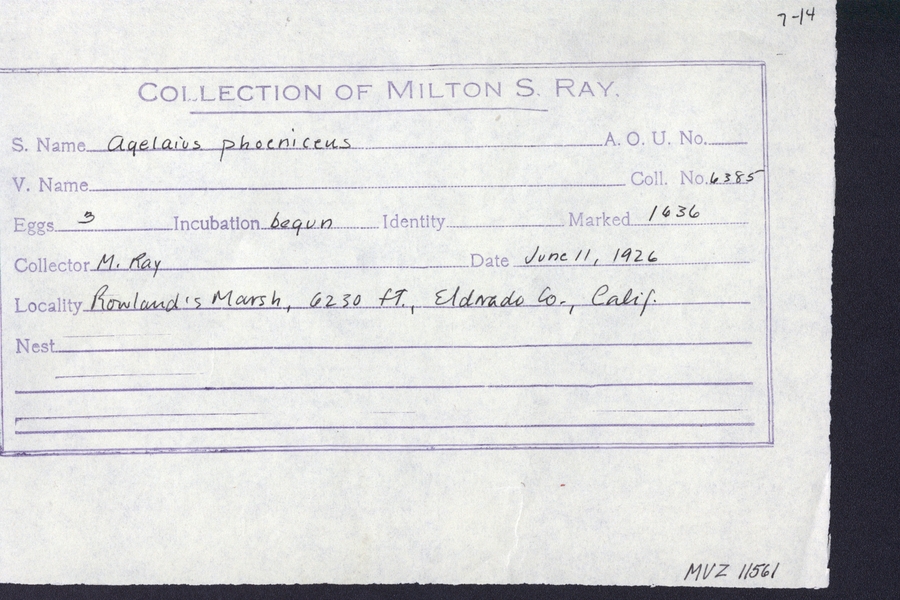 7-14
COLLECTION OF MILTON S. RAY.
S. Name Agelaius phoeniceus A. O. U. No.
V. Name Coll. No. 6385
Eggs 3 Incubation begun Identity Marked 1636
Collector M. Ray Date June 11, 1926
Locality Rowland's Marsh, 6230 ft., Eldorado Co., Calif.
Nest
MVZ 11561